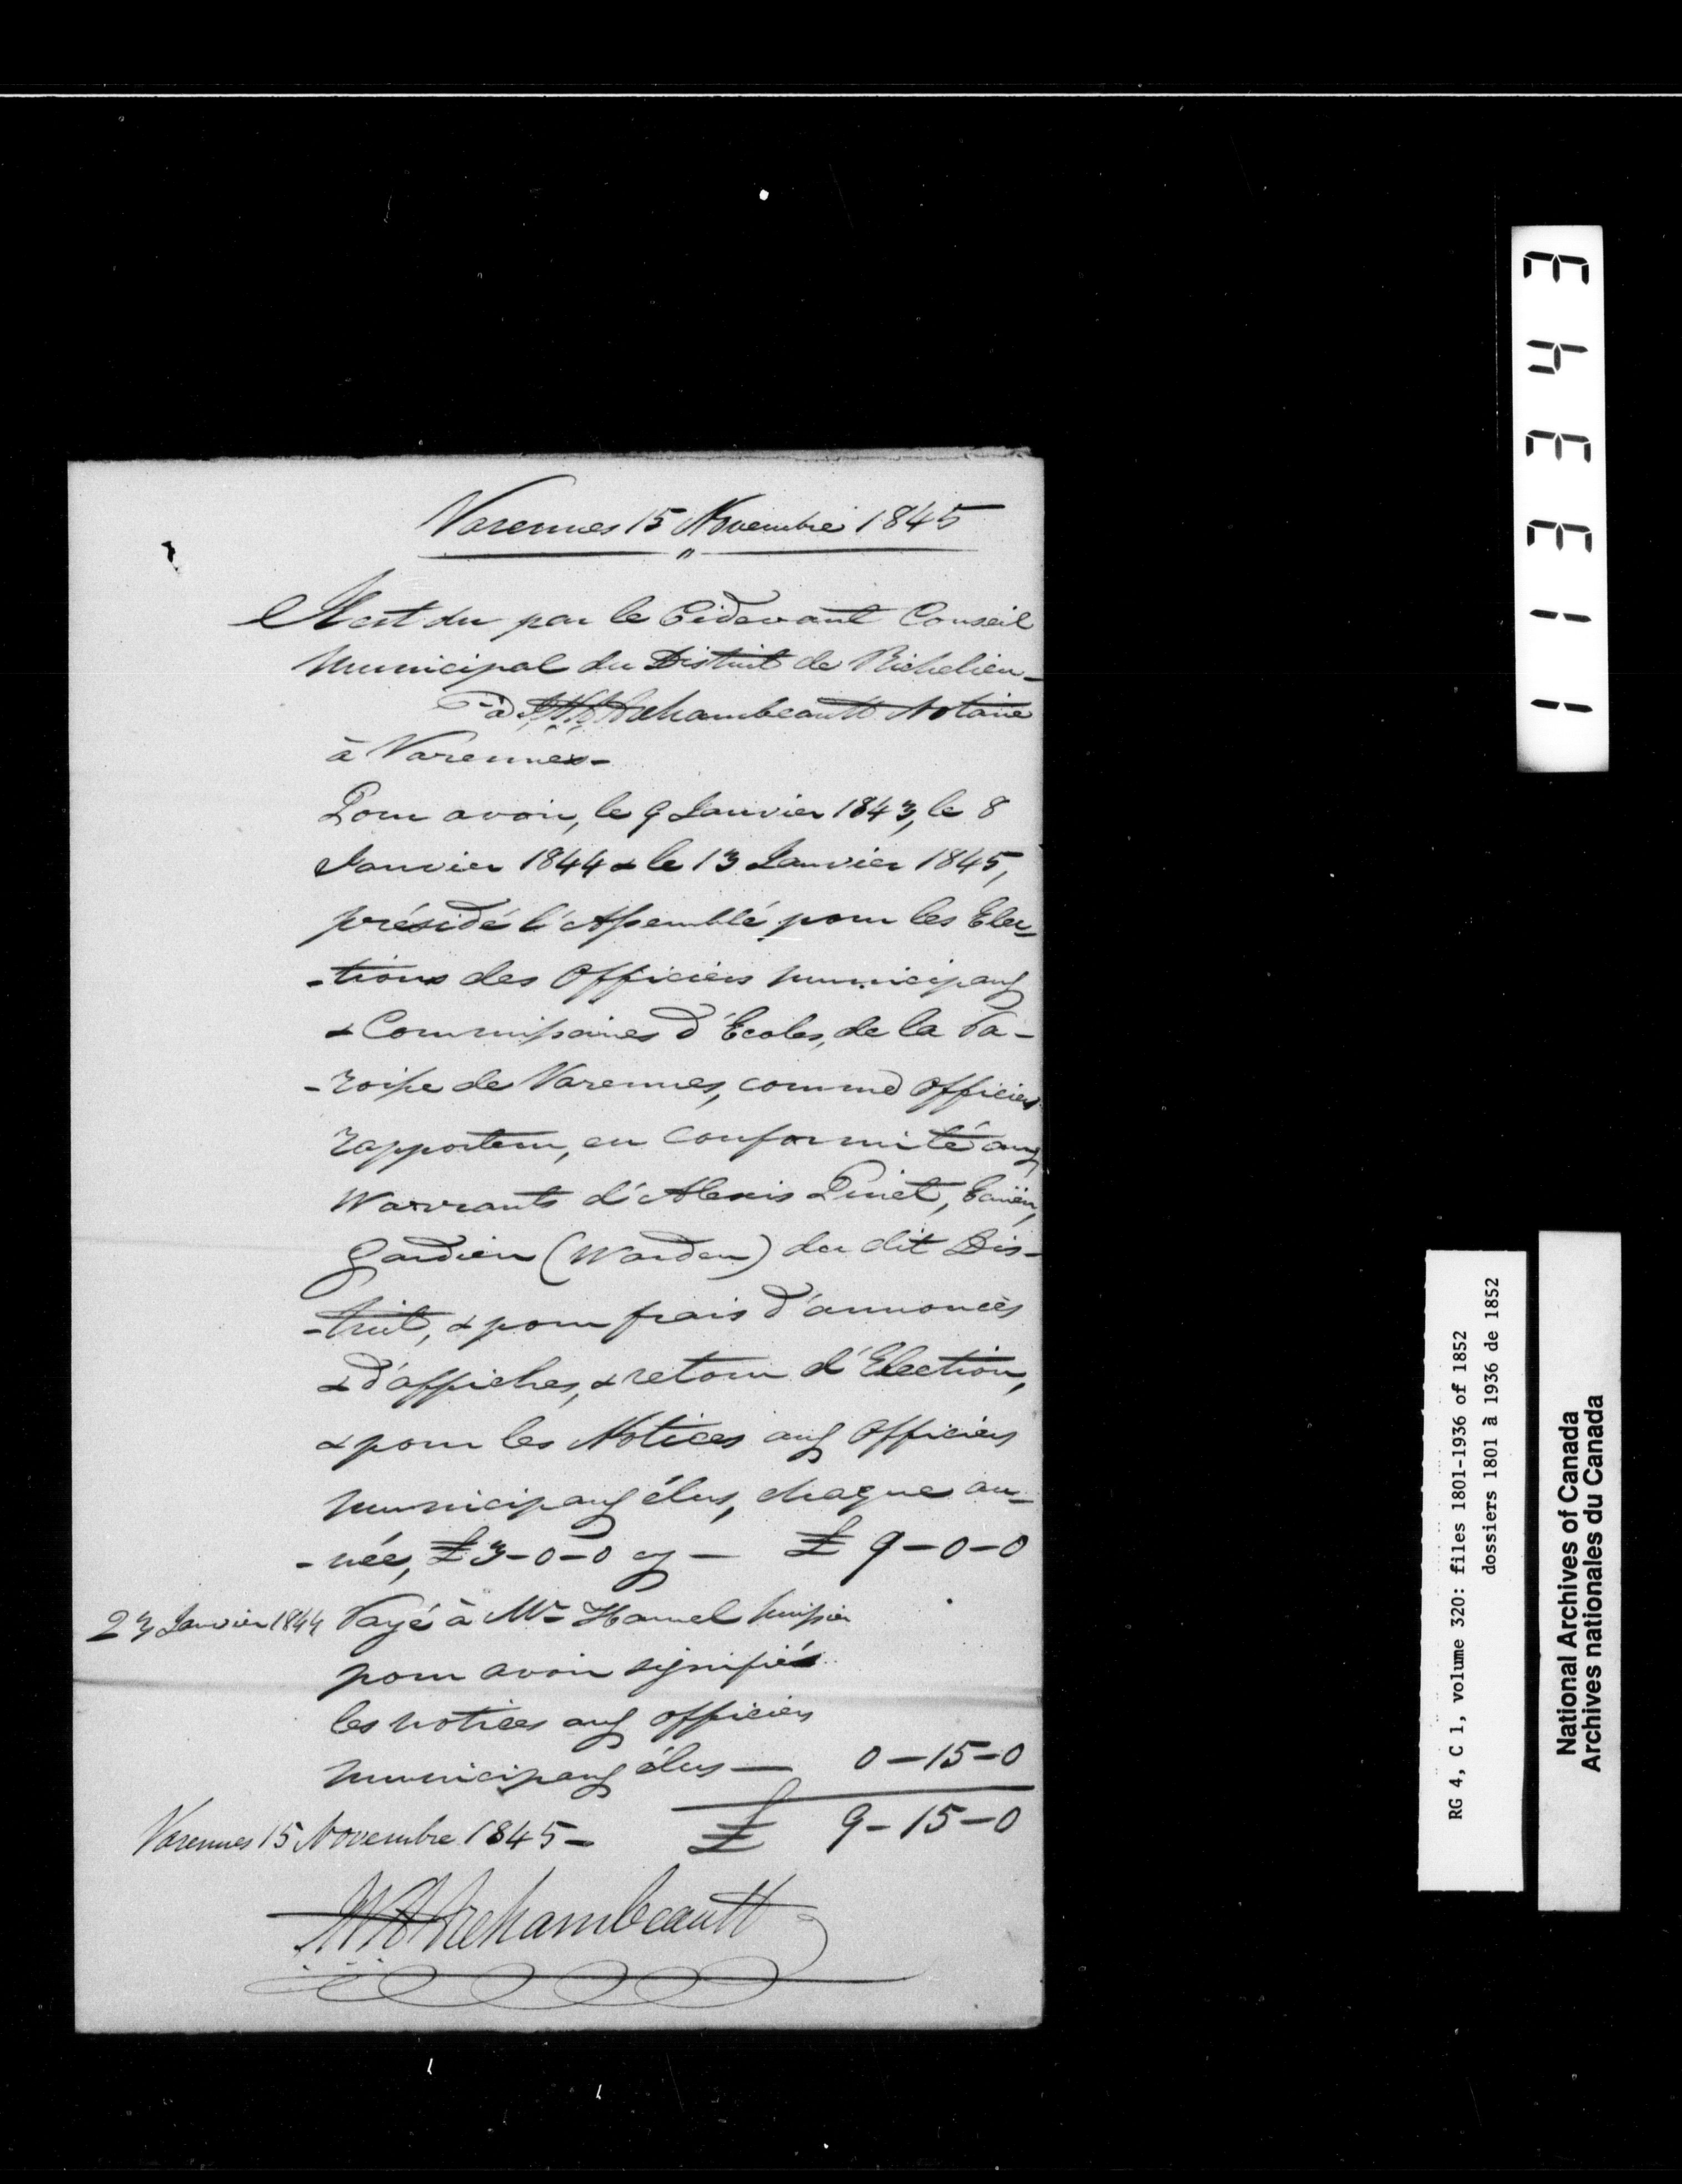 Varennes 15 Novembre 1845
"
Il est du par le Cidevant Conseil
Municipal du District de Richelieu_
à Archambeault Notaire
à Varennes-
Pour avoir, le 9 Janvier 1843, le 8
Janvier 1844 & le 13 Janvier 1845,
présidé l'Assemblé pour les Elec-
-tions des Officiers municipaux
& Commissaires d'Ecoles, de la Pa-
-roisse de Varennes, comme Officier
rapporteur, en conformité aux
Warrants d'Alexis Pinet, Ecuier,
Gardien (Warden) du dit Dis-
-trict, & pour frais d'annonces
& d'affiches, & retour d'Election,
& pour les Notices aux Officiers
municipaux élus, chaque an-
-née, £3-0-0 cy - £ 9-0-0
23 Janvier 1844 Payé à Mr Hamel huissier
pour avoir signifiés
les notices aux officiers
municipaux élus — 0-15-0
Varennes 15 Novembre 1845- £ 9-15-0
Archambeault
113343
RG 4, C 1, volume 320: files 1801-1936 of 1852
dossiers 1801 à 1936 de 1852
National Archives of Canada
Archives nationales du Canada